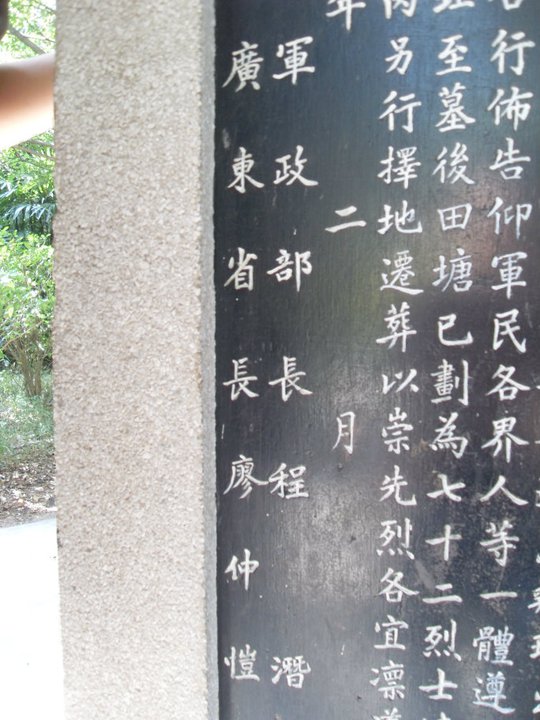 行佈告仰軍民各界人等一體遵
至墓後田塘已劃為七十二烈士
內另行擇地遷葬以崇先烈各宜凛
年二月
軍政部長程潛
廣東省長廖仲愷